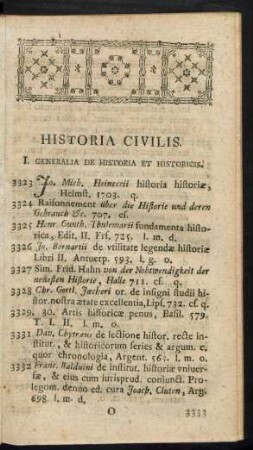 HISTORIA CIVILIS.
I. GENERALIA DE HISTORIA ET HISTORICIS.
3323 Jo. Mich. Heineccii historia historiæ,
Helmst. 1703. q.
3324 Raisonnement über die Historie und deren
Gebrauch &c. 707. cf.
3325 Henr. Gunth. Thulemarii fundamenta histo-
rica, Edit. II. Frf. 725. l. m. d.
3326 Jo. Bernartii de vtilitate legendæ historiæ
Libri II. Antuerp. 593. l. g. o.
3327 Sim. Frid. Hahn von der Nohtwendigkeit der
neuesten Historie, Halle 711. cf. q.
3328 Chr. Gottl. Jöcheri or. de insigni studii hi-
stor. nostra ætate excellentia, Lips. 732. cf. q.
3329. 30. Artis historicæ penus, Basil. 579.
T. I. II. l. m. o.
3331 Dav. Chytræus de lectione histor. recte in-
stitut. & historicorum series & argum. e,
quor chronologia, Argent. 565. l. m. o.
3332 Franc. Balduini de institut. historiæ vniuer-
sæ, & eius cum iurisprud. coniunct. Pro-
legom. denuo ed. cura Joach. Cluten, Arg.
698. l. m. d.
O 3333